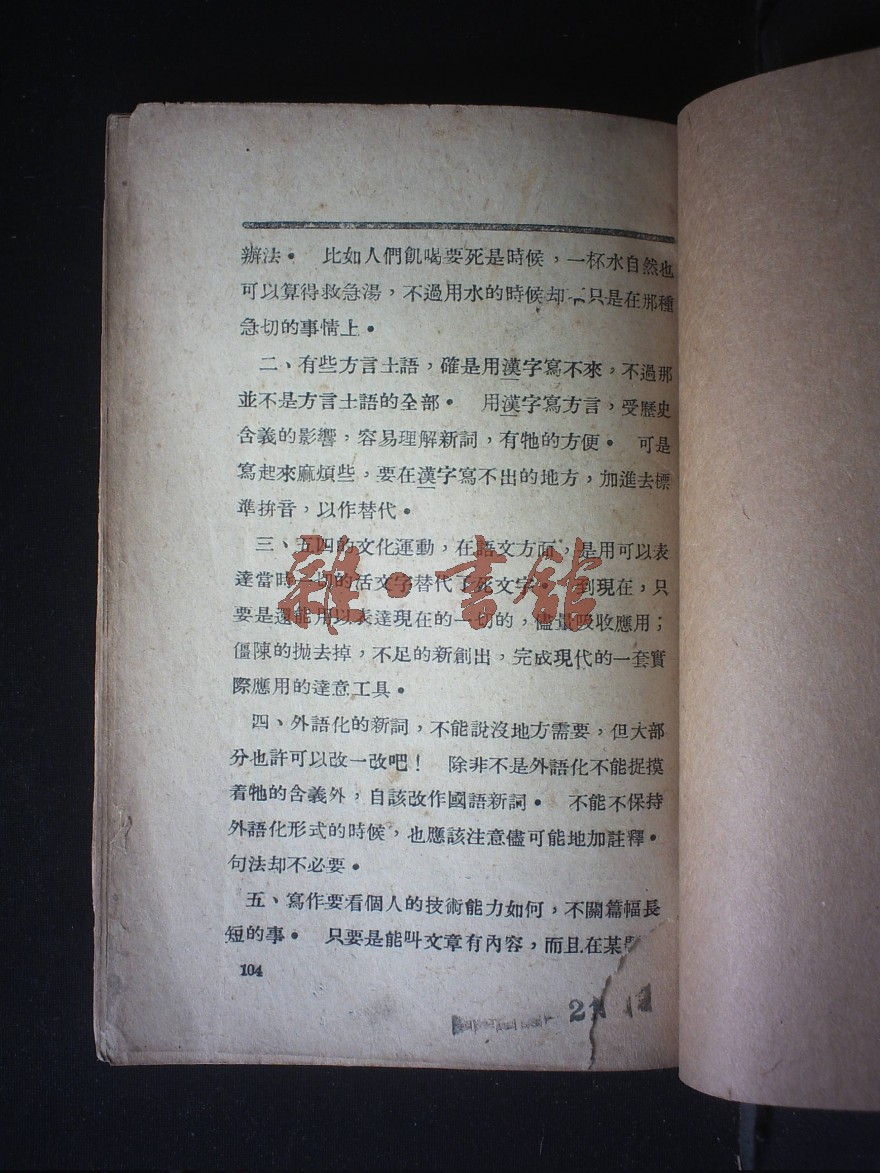 辦法。　比如人們飢喝要死是時候，一杯水自然也
可以算得救急湯，不過用水的時候却不只是在那種
急切的事情上。
二、有些方言土語，確是用漢字寫不來，不過那
並不是方言土語的全部。　用漢字寫方言，受歷史
含義的影響，容易理解新詞，有牠的方便。　可是
寫起來麻煩些，要在漢字寫不出的地方，加進去標
準拼音，以作替代。
三、五四的文化運動，在語文方面，是用可以表
達當時一切的活文字替代了死文字。　到現在，只
要是還能用以表達現在的一切的，儘量吸收應用；
僵陳的拋去掉，不足的新創出，完成現代的一套實
際應用的達意工具。
四、外語化的新詞，不能說沒地方需要，但大部
分也許可以改一改吧！　除非不是外語化不能捉摸
着牠的含義外，自該改作國語新詞。　不能不保持
外語化形式的時候，也應該注意儘可能地加註釋。
句法却不必要。
五、寫作要看個人的技術能力如何，不關篇幅長
短的事。　只要是能叫文章有內容，而且在某
104
雜·書館